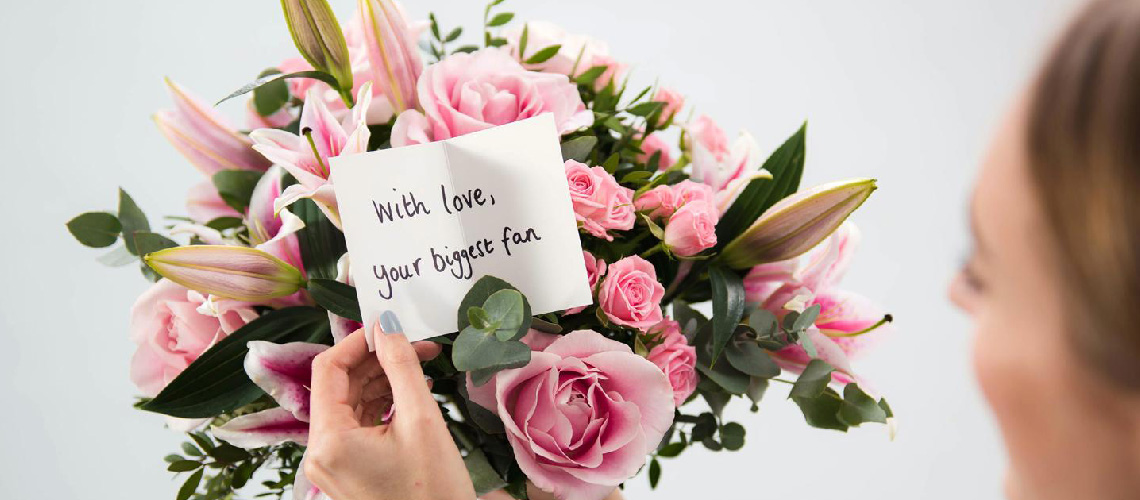 With love,
your biggest fan